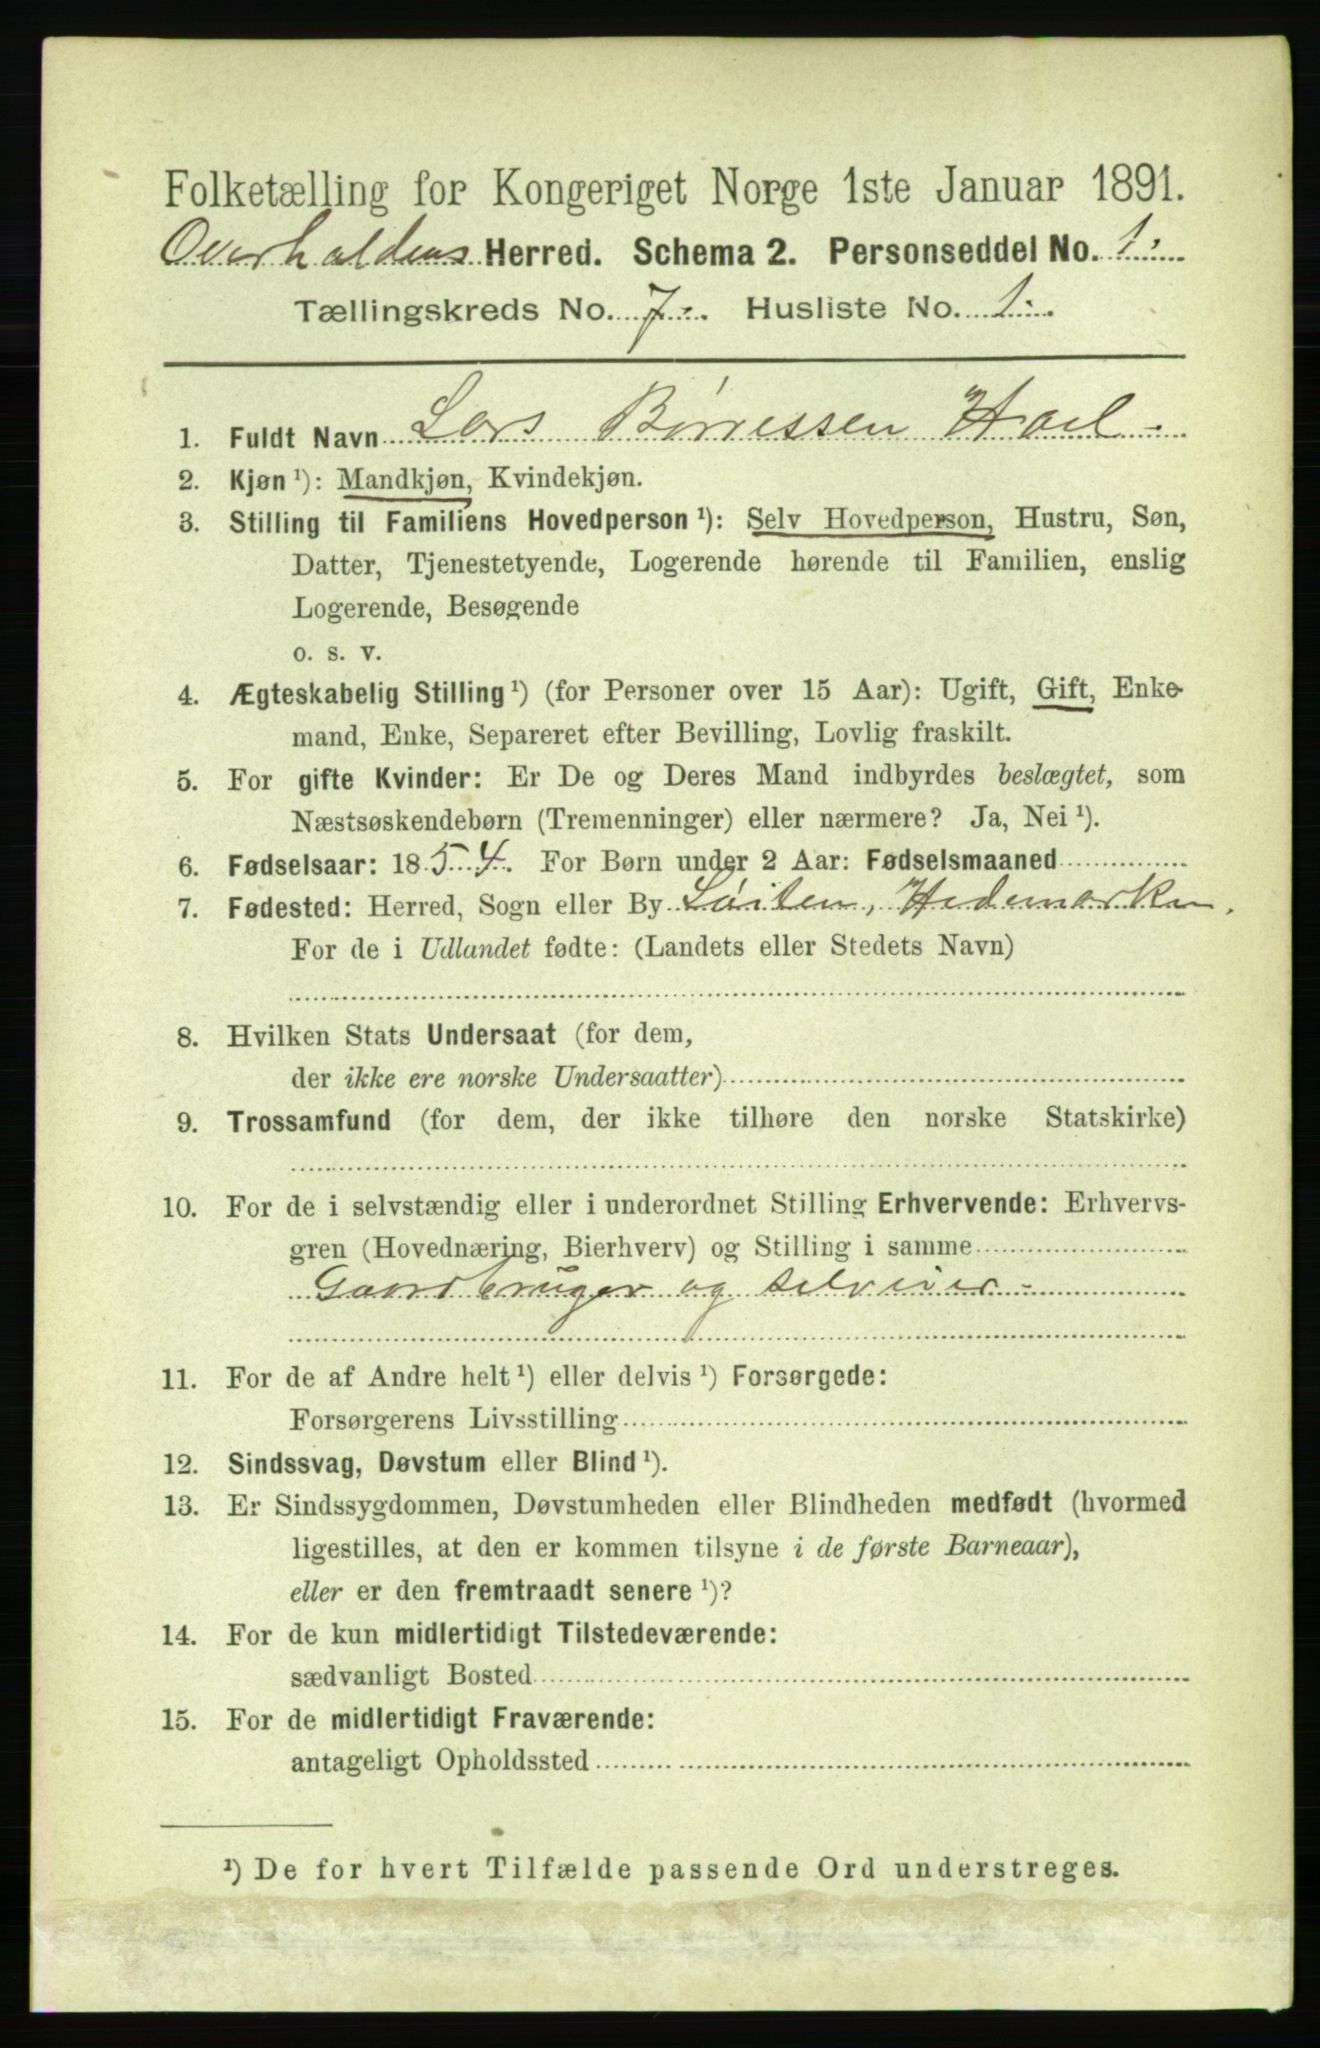 Folketælling for Kongeriget Norge 1ste Januar 1891.
Overhaldens Herred. Schema 2. Personseddel No. 1.
Tællingskreds No. 7. Husliste No. 1.
1. Fuldt Navn Lars Børressen
2. Kjøn ¹): Mandkjøn, Kvindekjøn.
3. Stilling til Familiens Hovedperson ¹): Selv Hovedperson, Hustru, Søn,
Datter, Tjenestetyende, Logerende hørende til Familien, enslig
Logerende, Besøgende
o. s. v.
4. Ægteskabelig Stilling ¹) (for Personer over 15 Aar): Ugift, Gift, Enke-
mand, Enke, Separeret efter Bevilling, Lovlig fraskilt.
5. For gifte Kvinder: Er De og Deres Mand indbyrdes beslægtet, som
Næstsøskendebørn (Tremenninger) eller nærmere? Ja, Nei ¹).
6. Fødselsaar: 1854. For Børn under 2 Aar: Fødselsmaaned
7. Fødested: Herred, Sogn eller By Løiten, Hedemarken.
For de i Udlandet fødte: (Landets eller Stedets Navn)
8. Hvilken Stats Undersaat (for dem,
der ikke ere norske Undersaatter)
9. Trossamfund (for dem, der ikke tilhøre den norske Statskirke)
10. For de i selvstændig eller i underordnet Stilling Erhvervende: Erhvervs-
gren (Hovednæring, Bierhverv) og Stilling i samme
Gaardbruger og selveier -
11. For de af Andre helt ¹) eller delvis ¹) Forsørgede:
Forsørgerens Livsstilling
12. Sindssvag, Døvstum eller Blind ¹).
13. Er Sindssygdommen, Døvstumheden eller Blindheden medfødt (hvormed
ligestilles, at den er kommen tilsyne i de første Barneaar),
eller er den fremtraadt senere ¹)?
14. For de kun midlertidigt Tilstedeværende:
sædvanligt Bosted
15. For de midlertidigt Fraværende:
antageligt Opholdssted
¹) De for hvert Tilfælde passende Ord understreges.